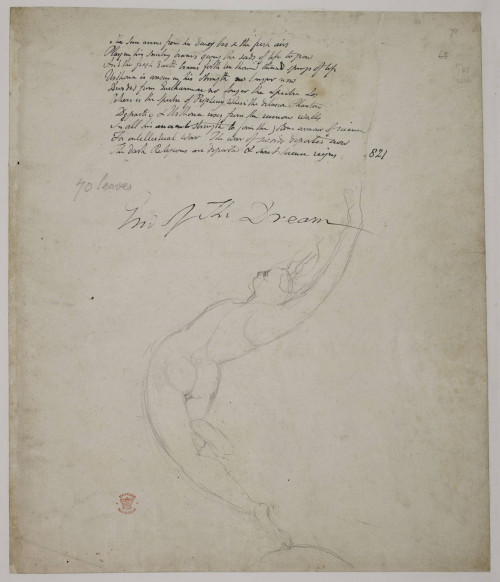 The Sun arises from his dewy bed & the fresh airs
Play in his smiling beams giving the seeds of life to grow
And the fresh Earth beams forth ten thousand thousand springs of life
Urthona is arisen in his strength no longer now
Divided from Enitharmon no longer the Spectre Los
Where is the Spectre of Prophecy where the delusive Phantom
Departed & Urthona rises from the ruinous walls
In all his ancient strength to form the golden armour of science
For intellectual War The war of swords departed now
The dark Religions are departed & sweet Science reigns 821
70 leaves
End of The Dream